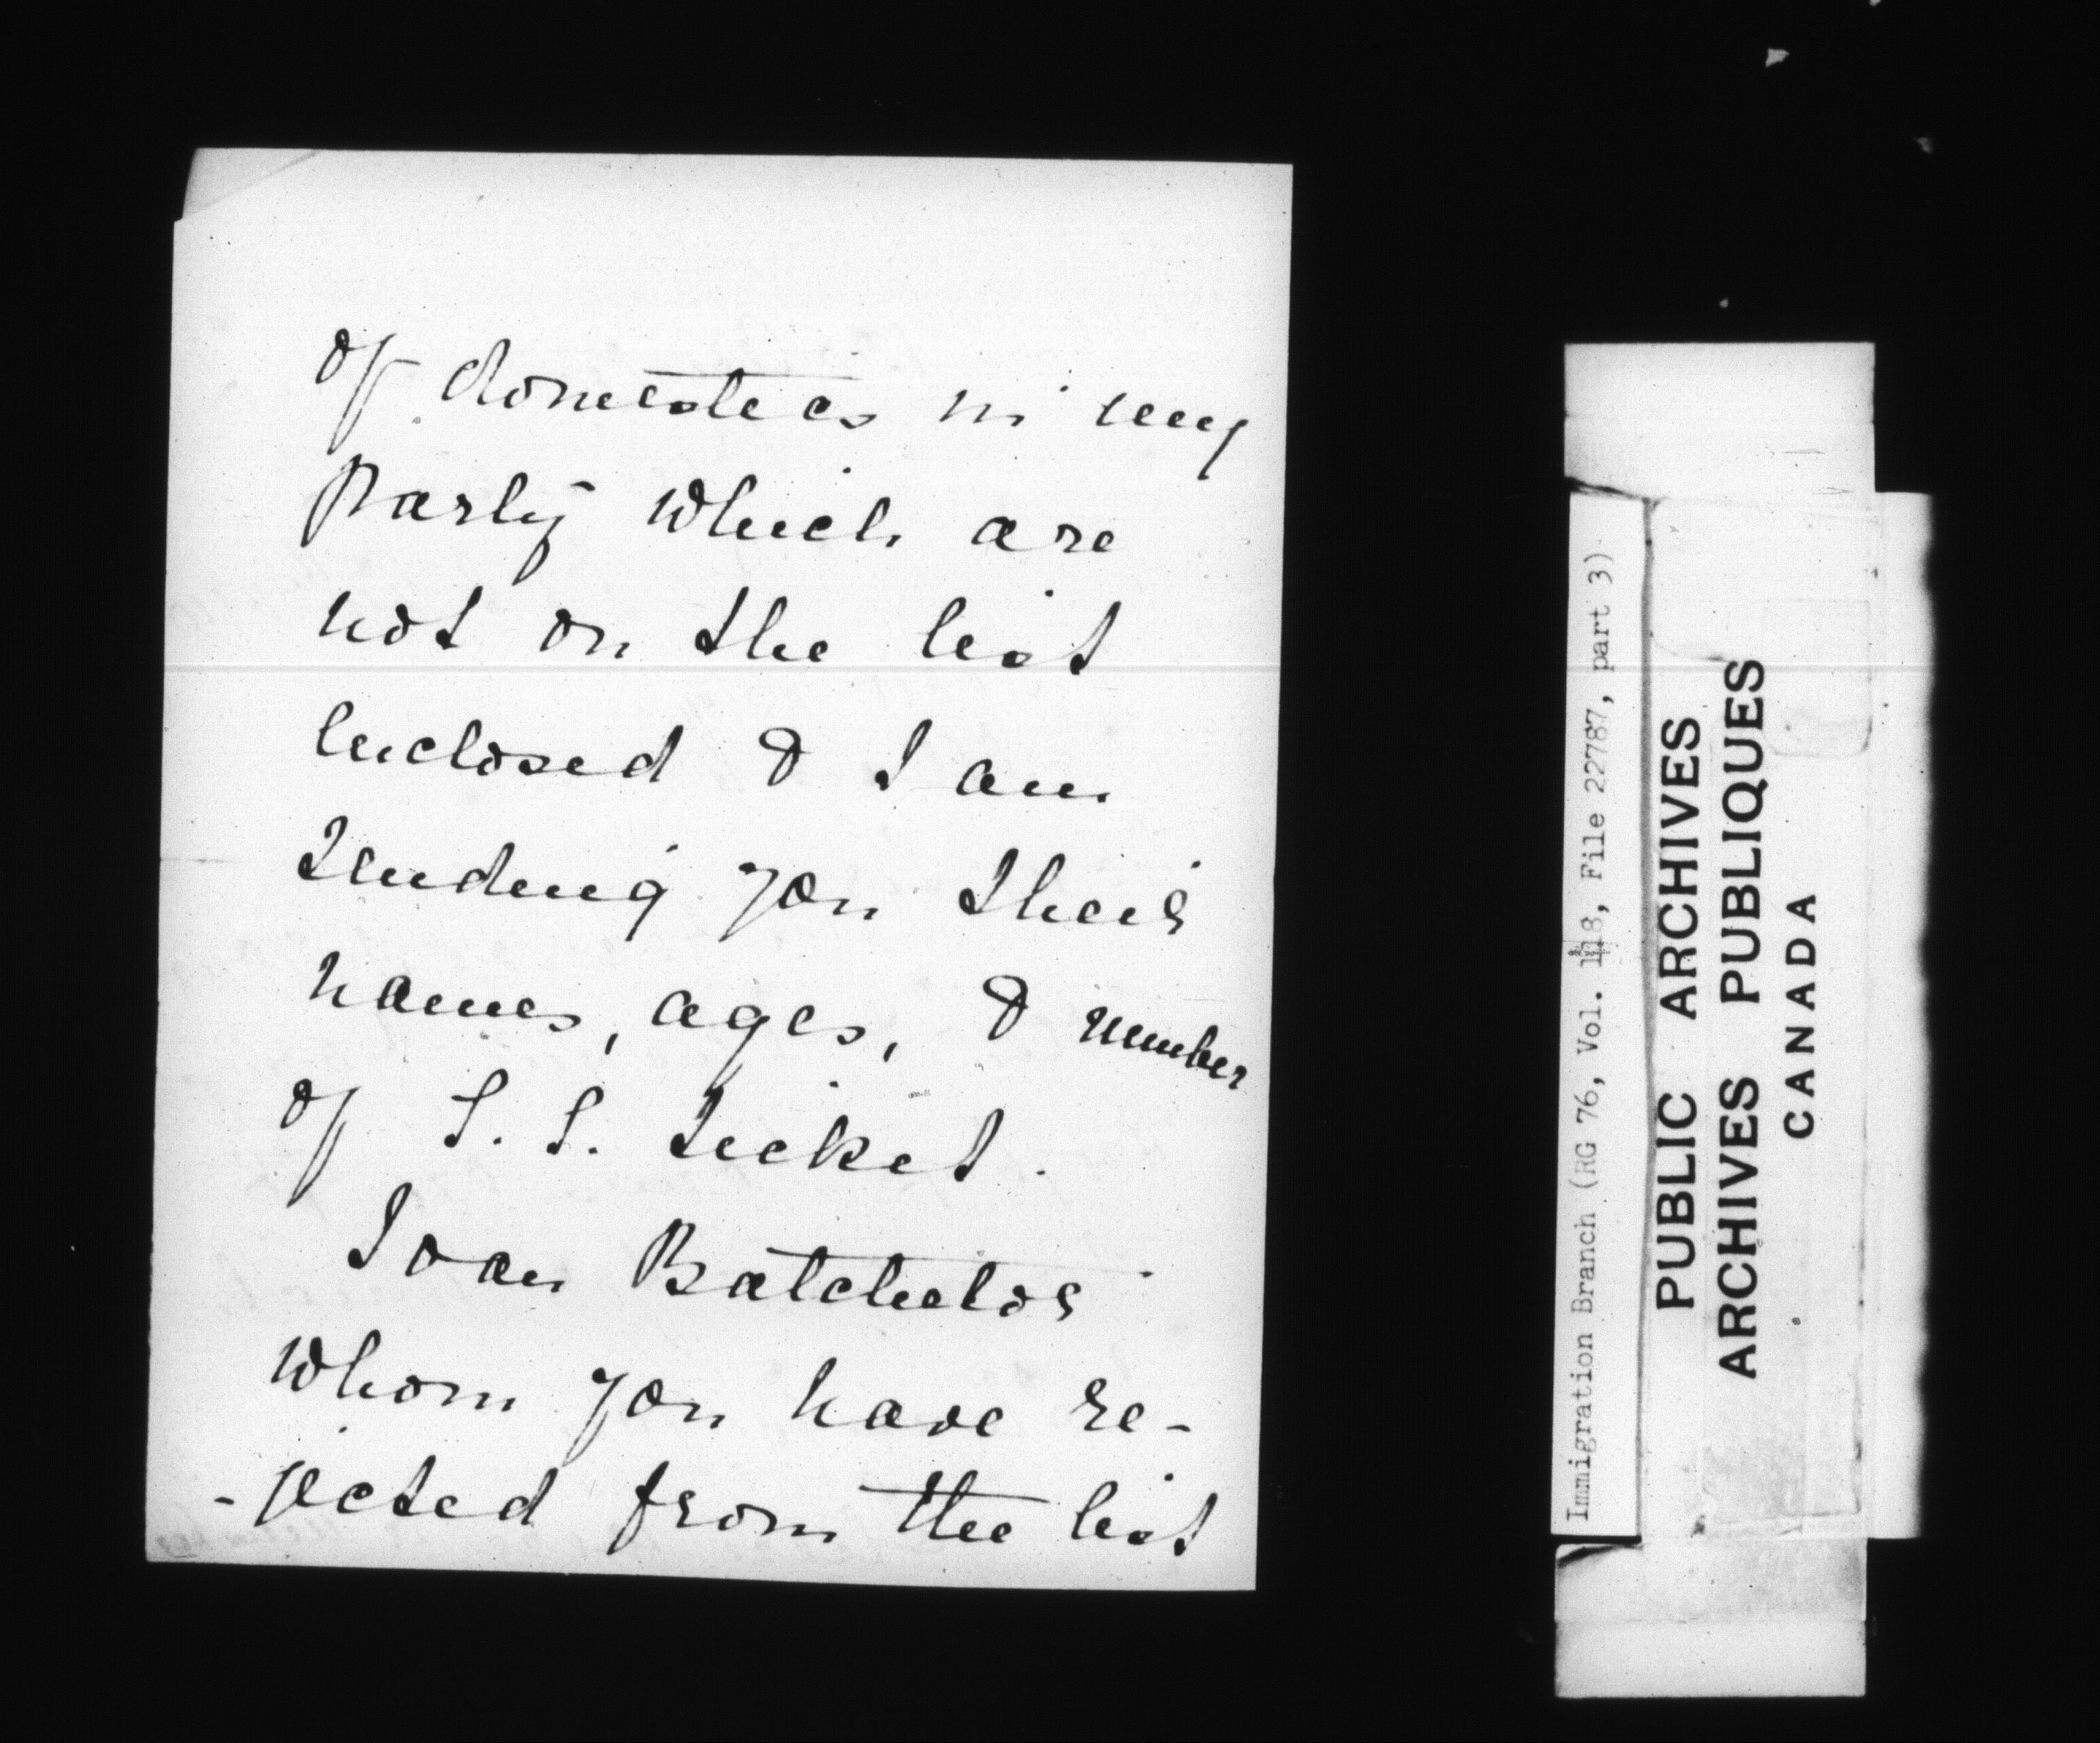 of domestics in my
party which are
not on the list
enclosed & I am
sending you their
names, ages, & number
of S. S. ticket.
Joan Batchelor
whom you have re-
-jected from the list
Immigration Branch (RG 76, Vol. 118, File 22787, part 3)
PUBLIC ARCHIVES
ARCHIVES PUBLIQUES
CANADA